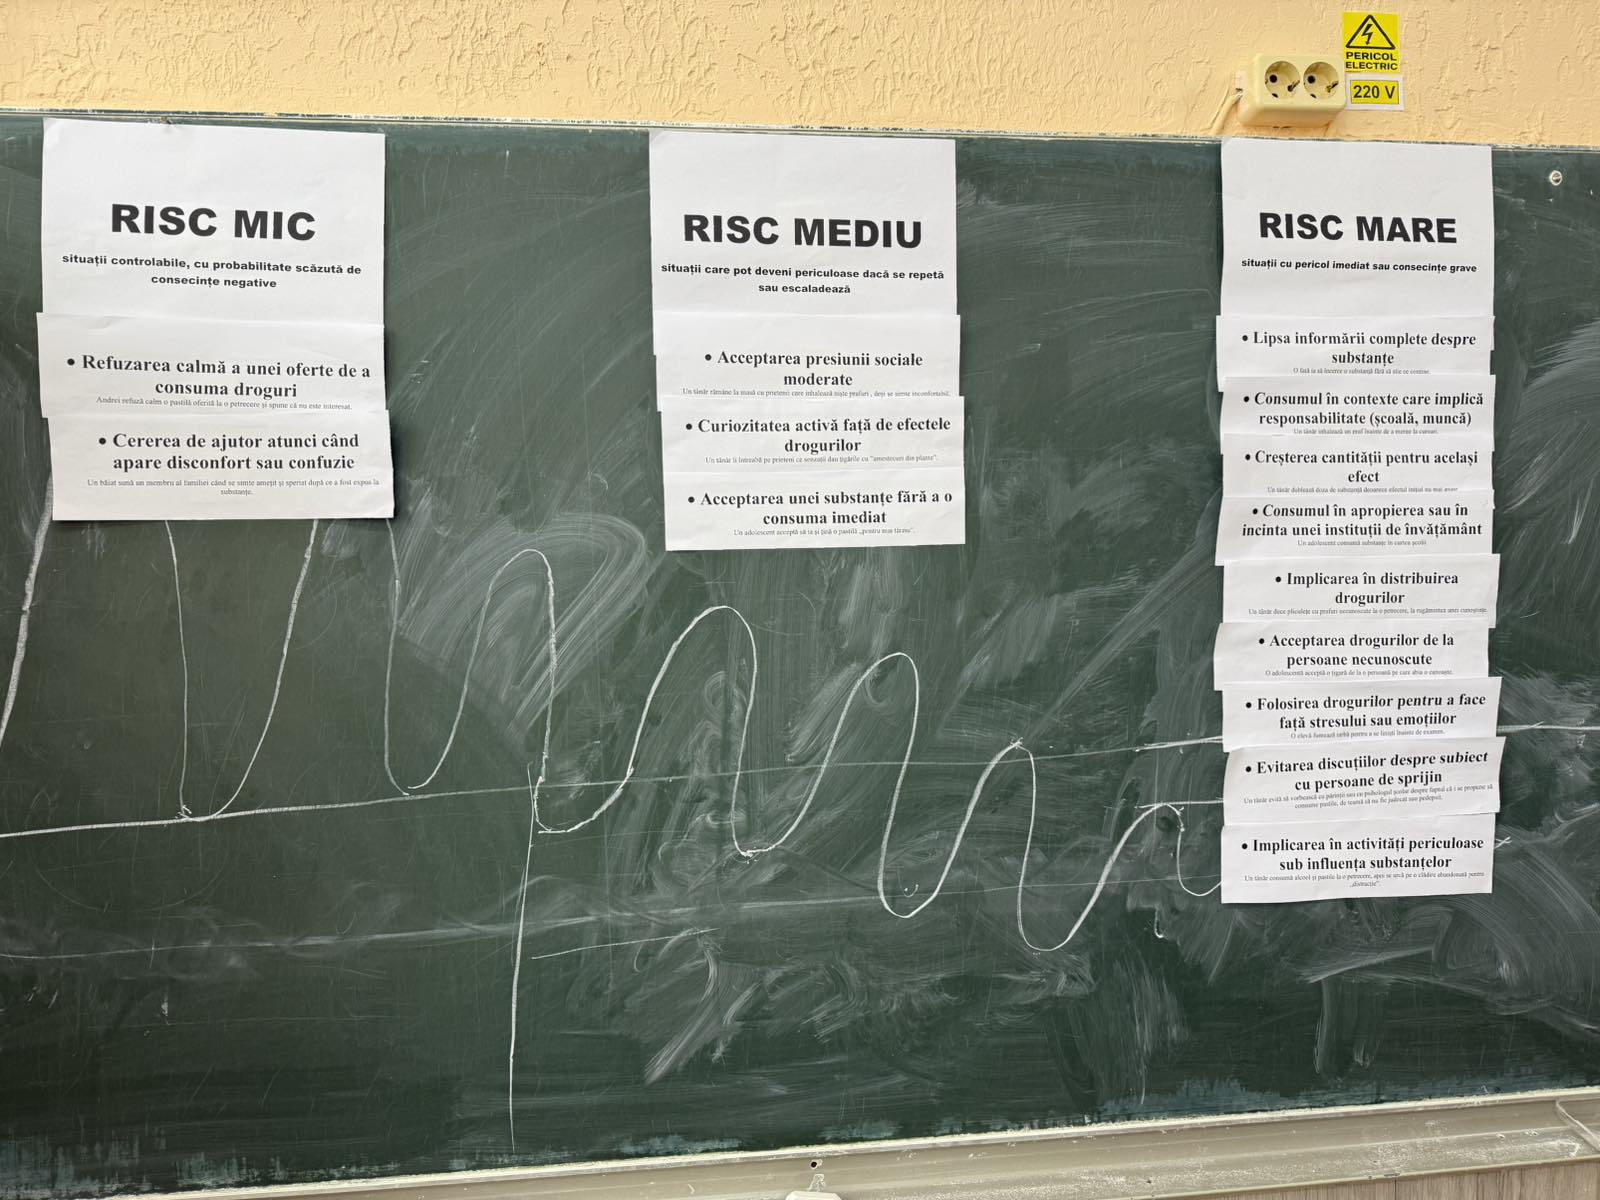 PERICOL
ELECTRIC
220 V
RISC MIC
situații controlabile, cu probabilitate scăzută de
consecințe negative
• Refuzarea calmă a unei oferte de a
consuma droguri
Andrei refuză calm o pastilă oferită la o petrecere și spune că nu este interesat.
• Cererea de ajutor atunci când
apare disconfort sau confuzie
Un băiat sună un membru al familiei când se simte amețit și speriat după ce a fost expus la
substanțe.
RISC MEDIU
situații care pot deveni periculoase dacă se repetă
sau escaladează
• Acceptarea presiunii sociale
moderate
Un tânăr rămâne la masă cu prieteni care inhalează niște prafuri , deși se simte inconfortabil.
• Curiozitatea activă față de efectele
drogurilor
Un tânăr îi întreabă pe prieteni ce senzații dau țigările cu "amestecuri din plante".
• Acceptarea unei substanțe fără a o
consuma imediat
Un adolescent acceptă să ia și țină o pastilă „pentru mai târziu".
RISC MARE
situații cu pericol imediat sau consecințe grave
• Lipsa informării complete despre
substanțe
O fată ia să încerce o substanță fără să știe ce conține.
• Consumul în contexte care implică
responsabilitate (școală, muncă)
Un tânăr inhalează un praf înainte de a merge la cursuri.
• Creșterea cantității pentru același
efect
Un tânăr dublează doza de substanță deoarece efectul inițial nu mai apare
• Consumul în apropierea sau în
incinta unei instituții de învățământ
Un adolescent consumă substanțe în curtea școlii
• Implicarea în distribuirea
drogurilor
Un tânăr duce pliculețe cu prafuri necunoscute la o petrecere, la rugămintea unei cunoștințe.
• Acceptarea drogurilor de la
persoane necunoscute
O adolescentă acceptă o țigară de la o persoană pe care abia o cunoaște.
• Folosirea drogurilor pentru a face
față stresului sau emoțiilor
O elevă fumează iarbă pentru a se liniști înainte de examen.
• Evitarea discuțiilor despre subiect
cu persoane de sprijin
Un tânăr evită să vorbească cu părinții sau cu psihologul școlar despre faptul că i se propune să
consume pastile, de teamă să nu fie judecat sau pedepsit.
• Implicarea în activități periculoase
sub influența substanțelor
Un tânăr consumă alcool și pastile la o petrecere, apoi se urcă pe o clădire abandonată pentru
„distracție".